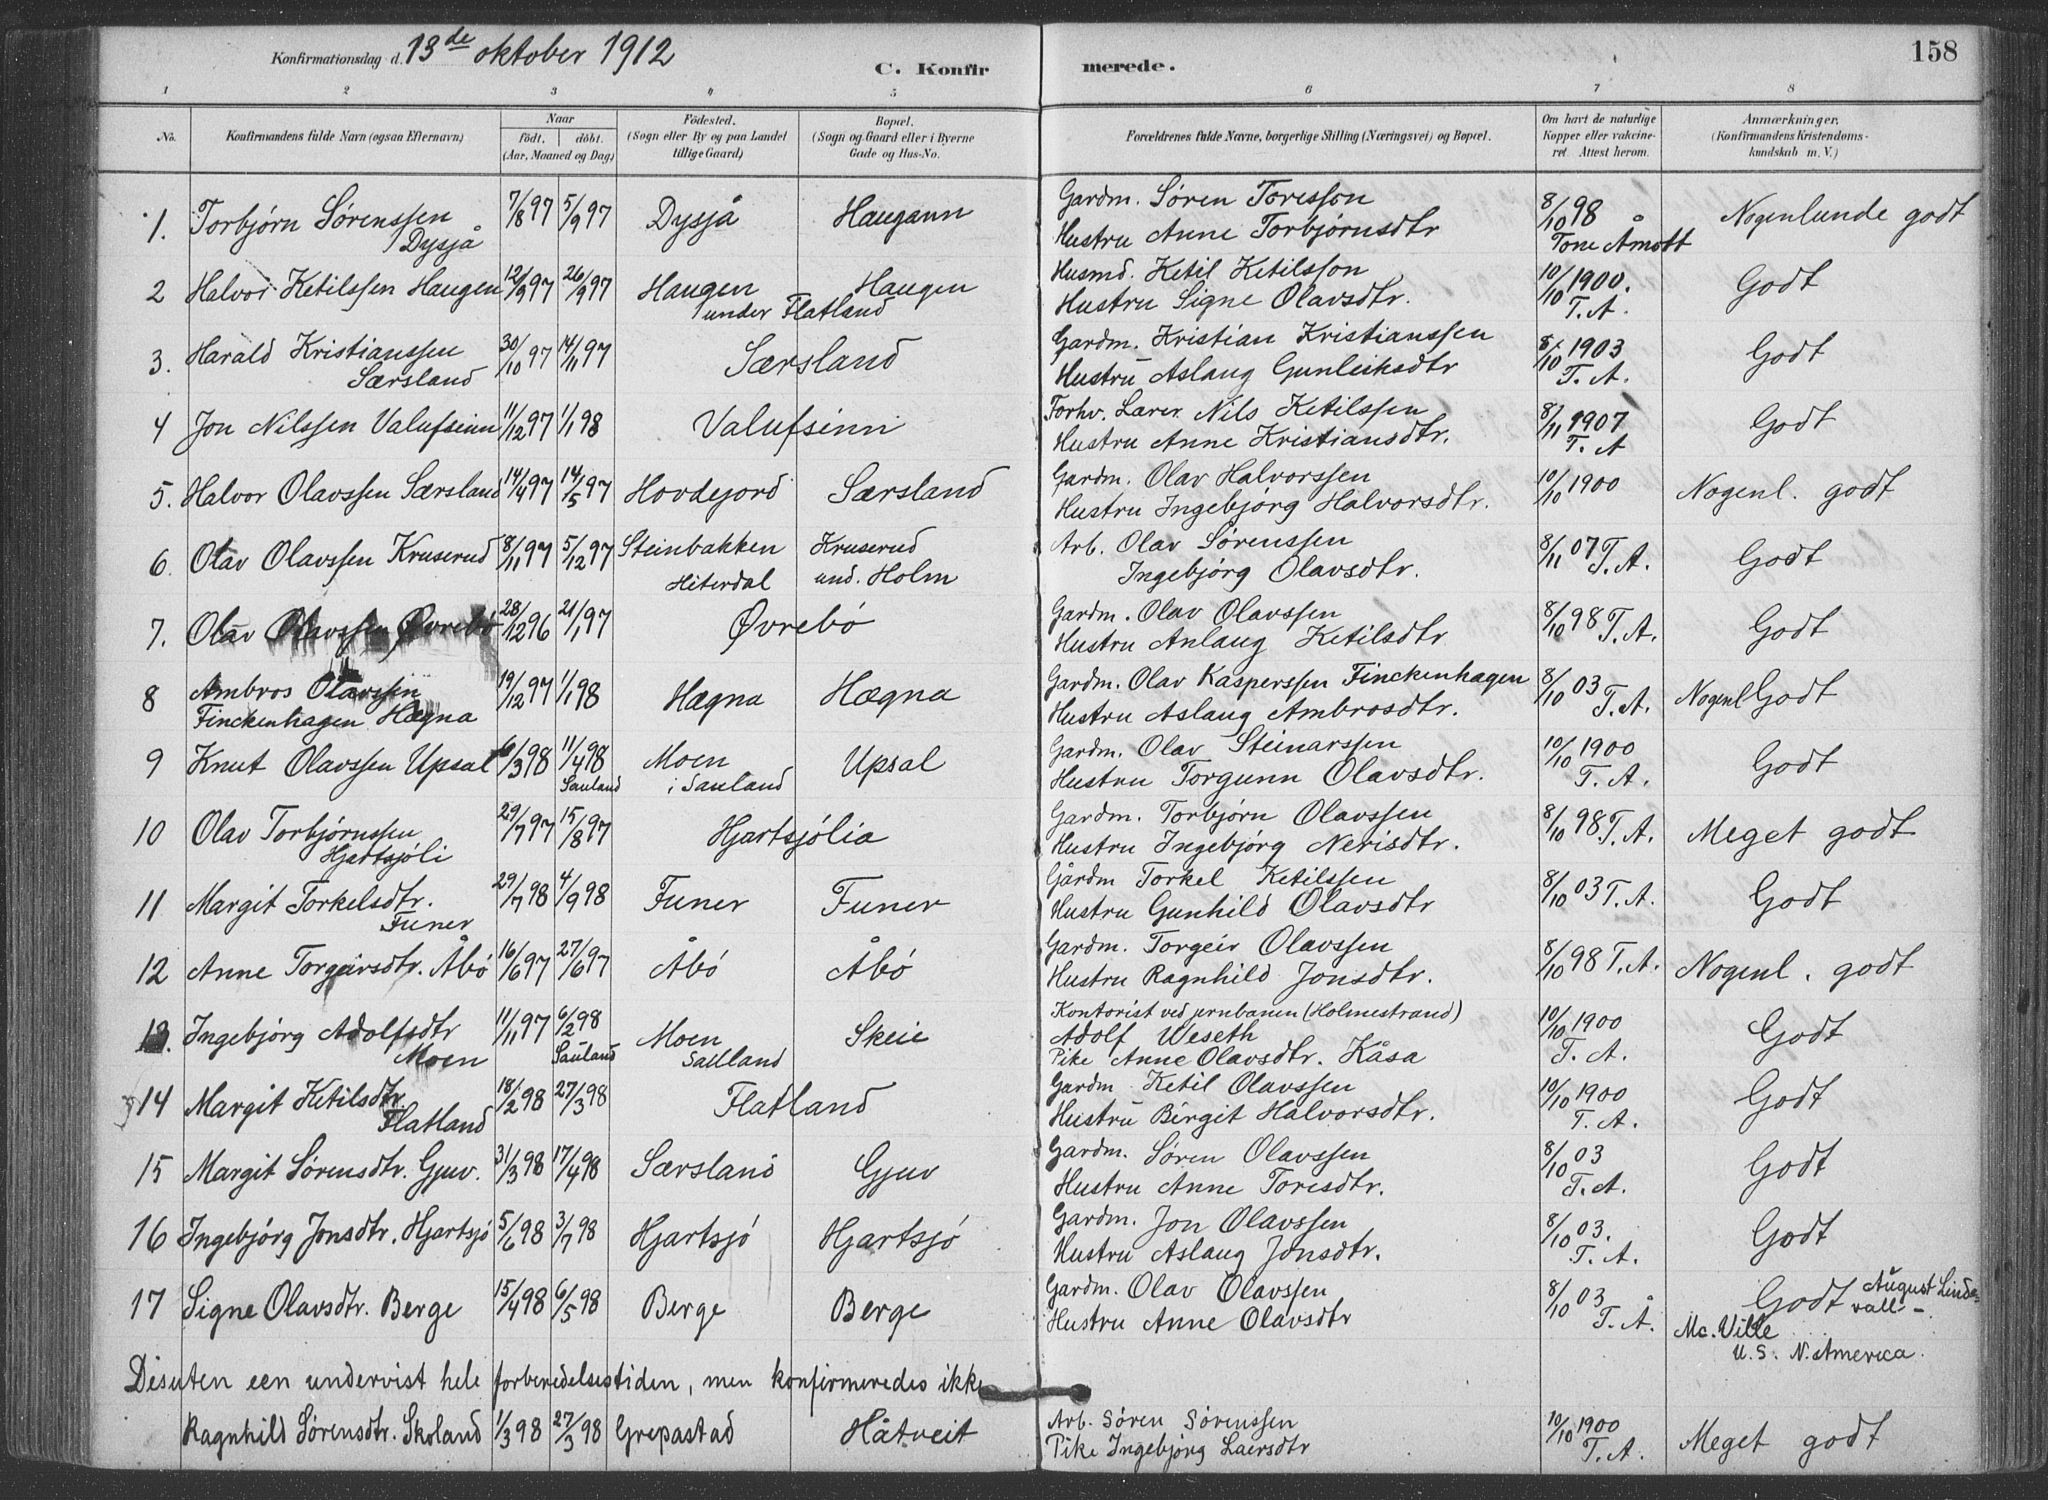 Konfirmationsdag d. 13de oktober 1912
C. Konfirmerede.
158
1 2 3 4 5 6 7 8
No. Konfirmandens fulde Navn (ogsaa Efternavn) Naar födt. döbt. (Aar, Maaned og Dag) Födested. (Sogn eller By og paa Landet tillige Gaard) Bopæl. (Sogn og Gaard eller i Byerne Gade og Hus-No. Forældrenes fulde Navne, borgerlige Stilling (Næringsvei) og Bopæl. Om havt de naturlige Kopper eller vakcineret. Attest herom. Anmærkninger. (Konfirmandens Kristendomskundskab m. V.)
1. Torbjørn Sørenssen Dysjå 7/8 97 5/9 97 Dysjå Haugann Gardm. Søren Toresson Hustru Anne Torbjørnsdtr 8/10 98 Tone Åmott Nogenlunde godt
2 Halvor Ketilssen Haugen 12/9 97 26/9 97 Haugen under Flatland Haugen Husmd. Ketil Ketilsson Hustru Signe Olavsdtr. 10/10 1900. T.A. Godt
3. Harald Kristianssen Særsland 30/10 97 14/11 97 Særsland Gardm. Kristian Kristianssen Hustru Aslaug Gunleiksdtr 8/10 1903 T. A. Godt
4 Jon Nilssen Valufsinn 11/12 97 1/1 98 Valufsinn Forhv. Lærer Nils Ketilssen Hustru Anne Kristiansdtr. 8/11 1907 T. A Godt
5. Halvor Olavssen Særsland 14/4 97 14/5 97 Hovdejord Særsland Gardm. Olav Halvorssen Hustru Ingebjørg Halvorsdtr. 10/10 1900 Nogenl. godt
6. Olav Olavssen Kruserud 8/11 97 5/12 97 Steinbakken Hiterdal Kruserud und. Holm Arb. Olav Sørenssen Ingebjørg Olavsdtr. 8/11 07 T. A. Godt
7. Olav Olavssen Øvrebó 28/12 96 21/1 97 Øvrebó Gardm. Olav Olavssen Hustru Anlaug Ketilsdtr 8/10 98 T. A. Godt
8 Ambros Olavssen Finckenhagen Hægna 19/12 97 1/1 98 Hægna Hægna Gardm. Olav Kasperssen Finckenhagen Hustru Aslaug Ambrosdtr. 8/10 03 T. A. Nogenl Godt
9 Knut Olavssen Upsal 6/3 98 11/4 98 Sauland Moen i Sauland Upsal Gardm. Olav Steinarssen Hustru Torgunn Olavsdtr. 10/10 1900 T. A. Godt
10 Olav Torbjørnssen Hjartsjóli 29/7 97 15/8 97 Hjartsjólia Gardm. Torbjørn Olavssen Hustru Ingebjørg Nerisdtr. 8/10 98 T. A. Meget godt
11 Margit Torkelsdtr. Funer 29/7 98 4/9 98 Funer Funer Gårdm Torkel Ketilssen Hustru Gunhild Olavsdtr 8/10 03 T. A. Godt
12 Anne Torgeirsdtr. Åbó 16/6 97 27/6 97 Åbó Åbó Gardm. Torgeir Olavssen Hustru Ragnhild Jonsdtr. 8/10 98 T. A. Nogenl. godt
13. Ingebjørg Adolfsdtr Moen 11/11 97 6/2 98 Sauland Moen Sauland Skeie Kontorist ved jernbanen (Holmestrand) Adolf Weseth Pike Anne Olavsdtr. Kåsa 10/10 1900 T. A. Godt
14 Margit Ketilsdtr. Flatland 18/2 98 27/3 98 Flatland Gardm. Ketil Olavssen Hustru Birgit Halvorsdtr. 10/10 1900 T. A. Godt
15 Margit Sørensdtr. Gjuv. 31/3 98 17/4 98 Særsland Gjuv Gardm. Søren Olavssen Hustru Anne Toresdtr. 8/10 03 T. A. Godt
16 Ingebjørg Jonsdtr. Hjartsjó 5/6 98 3/7 98 Hjartsjó Hjartsjó Gardm. Jon Olavssen Hustru Aslaug Jonsdtr. 8/10 03. T. A. Godt
17 Signe Olavsdtr. Berge 15/4 98 6/5 98 Berge Berge Gardm. Olav Olavssen Hustru Anne Olavsdtr 8/10 03 T. Å. Godt August Lindevall - Mc. Ville U. S. N. America.
Desuten een undervist hele forberedelsestiden, men konfirmeredes ikke
Ragnhild Sørensdtr. Skoland 1/3 98 27/3 98 Grepastad Håtveit Arb. Søren Sørenssen Pike Ingebjørg Laersdtr 10/10 1900 T. A. Meget godt